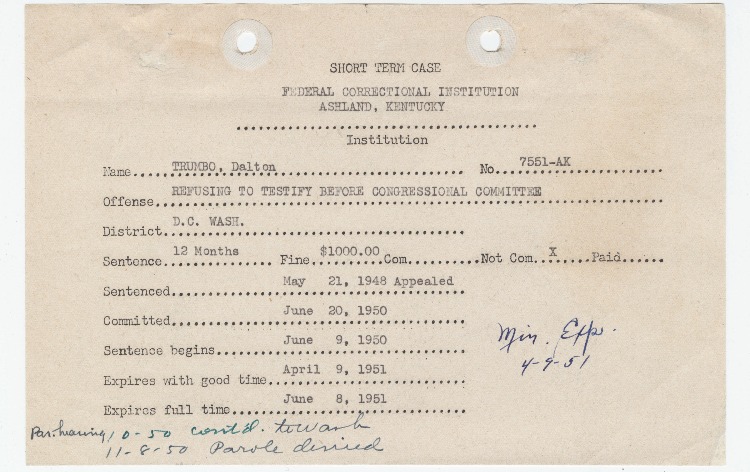 SHORT TERM CASE
FEDERAL CORRECTIONAL INSTITUTION
ASHLAND, KENTUCKY
Institution
Name.....TRUMBO, Dalton No....7551-AK
Offense.REFUSING TO TESTIFY BEFORE CONGRESSIONAL COMMITTEE
District..D.C. WASH.
Sentence..12 Months Fine..$1000.00 Com. Not Com..X Paid......
Sentenced....May 21, 1948 Appealed
Committed....June 20, 1950
Sentence begins....June 9, 1950
Expires with good time...April 9, 1951
Expires full time....June 8, 1951
Min. Exp.
4-9-51
Par. hearing 10-50 cont'd. to Wash
11-8-50 Parole denied